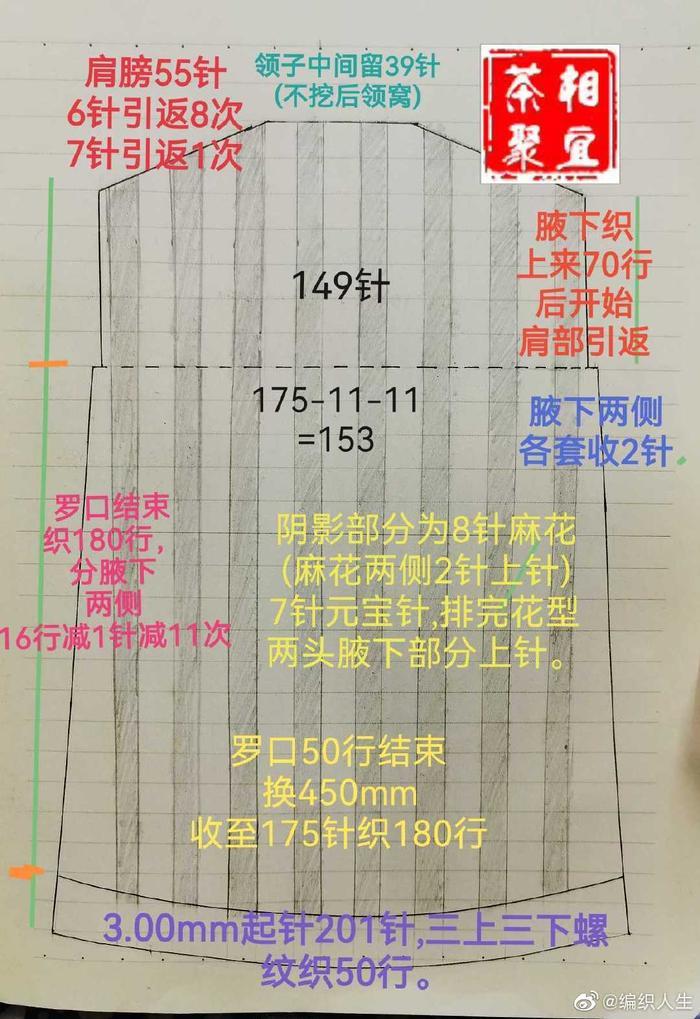 肩膀55针
6针引返8次
7针引返1次
领子中间留39针
(不挖后领窝)
茶 相
聚 宜
149针
腋下织
上来70行
后开始
肩部引返
175-11-11
=153
腋下两侧
各套收2针
罗口结束
织180行，
分腋下
两侧
16行减1针减11次
阴影部分为8针麻花
(麻花两侧2针上针)
7针元宝针,排完花型
两头腋下部分上针。
罗口50行结束
换450mm
收至175针织180行
3.00mm起针201针,三上三下螺
纹织50行。
@编织人生